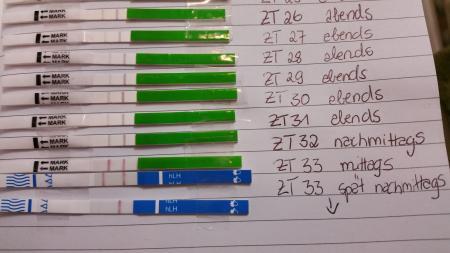 ZT 26 abends
MARK ZT 27 ebends
MARK ZT 28 ebends
MARK ZT 29 ebends
MARK ZT 30 ebends
MARK ZT 31 ebends
MARK ZT 32 nachmittags
MARK ZT 33 mittags
hLH ZT 33 spät nachmittags
hLH